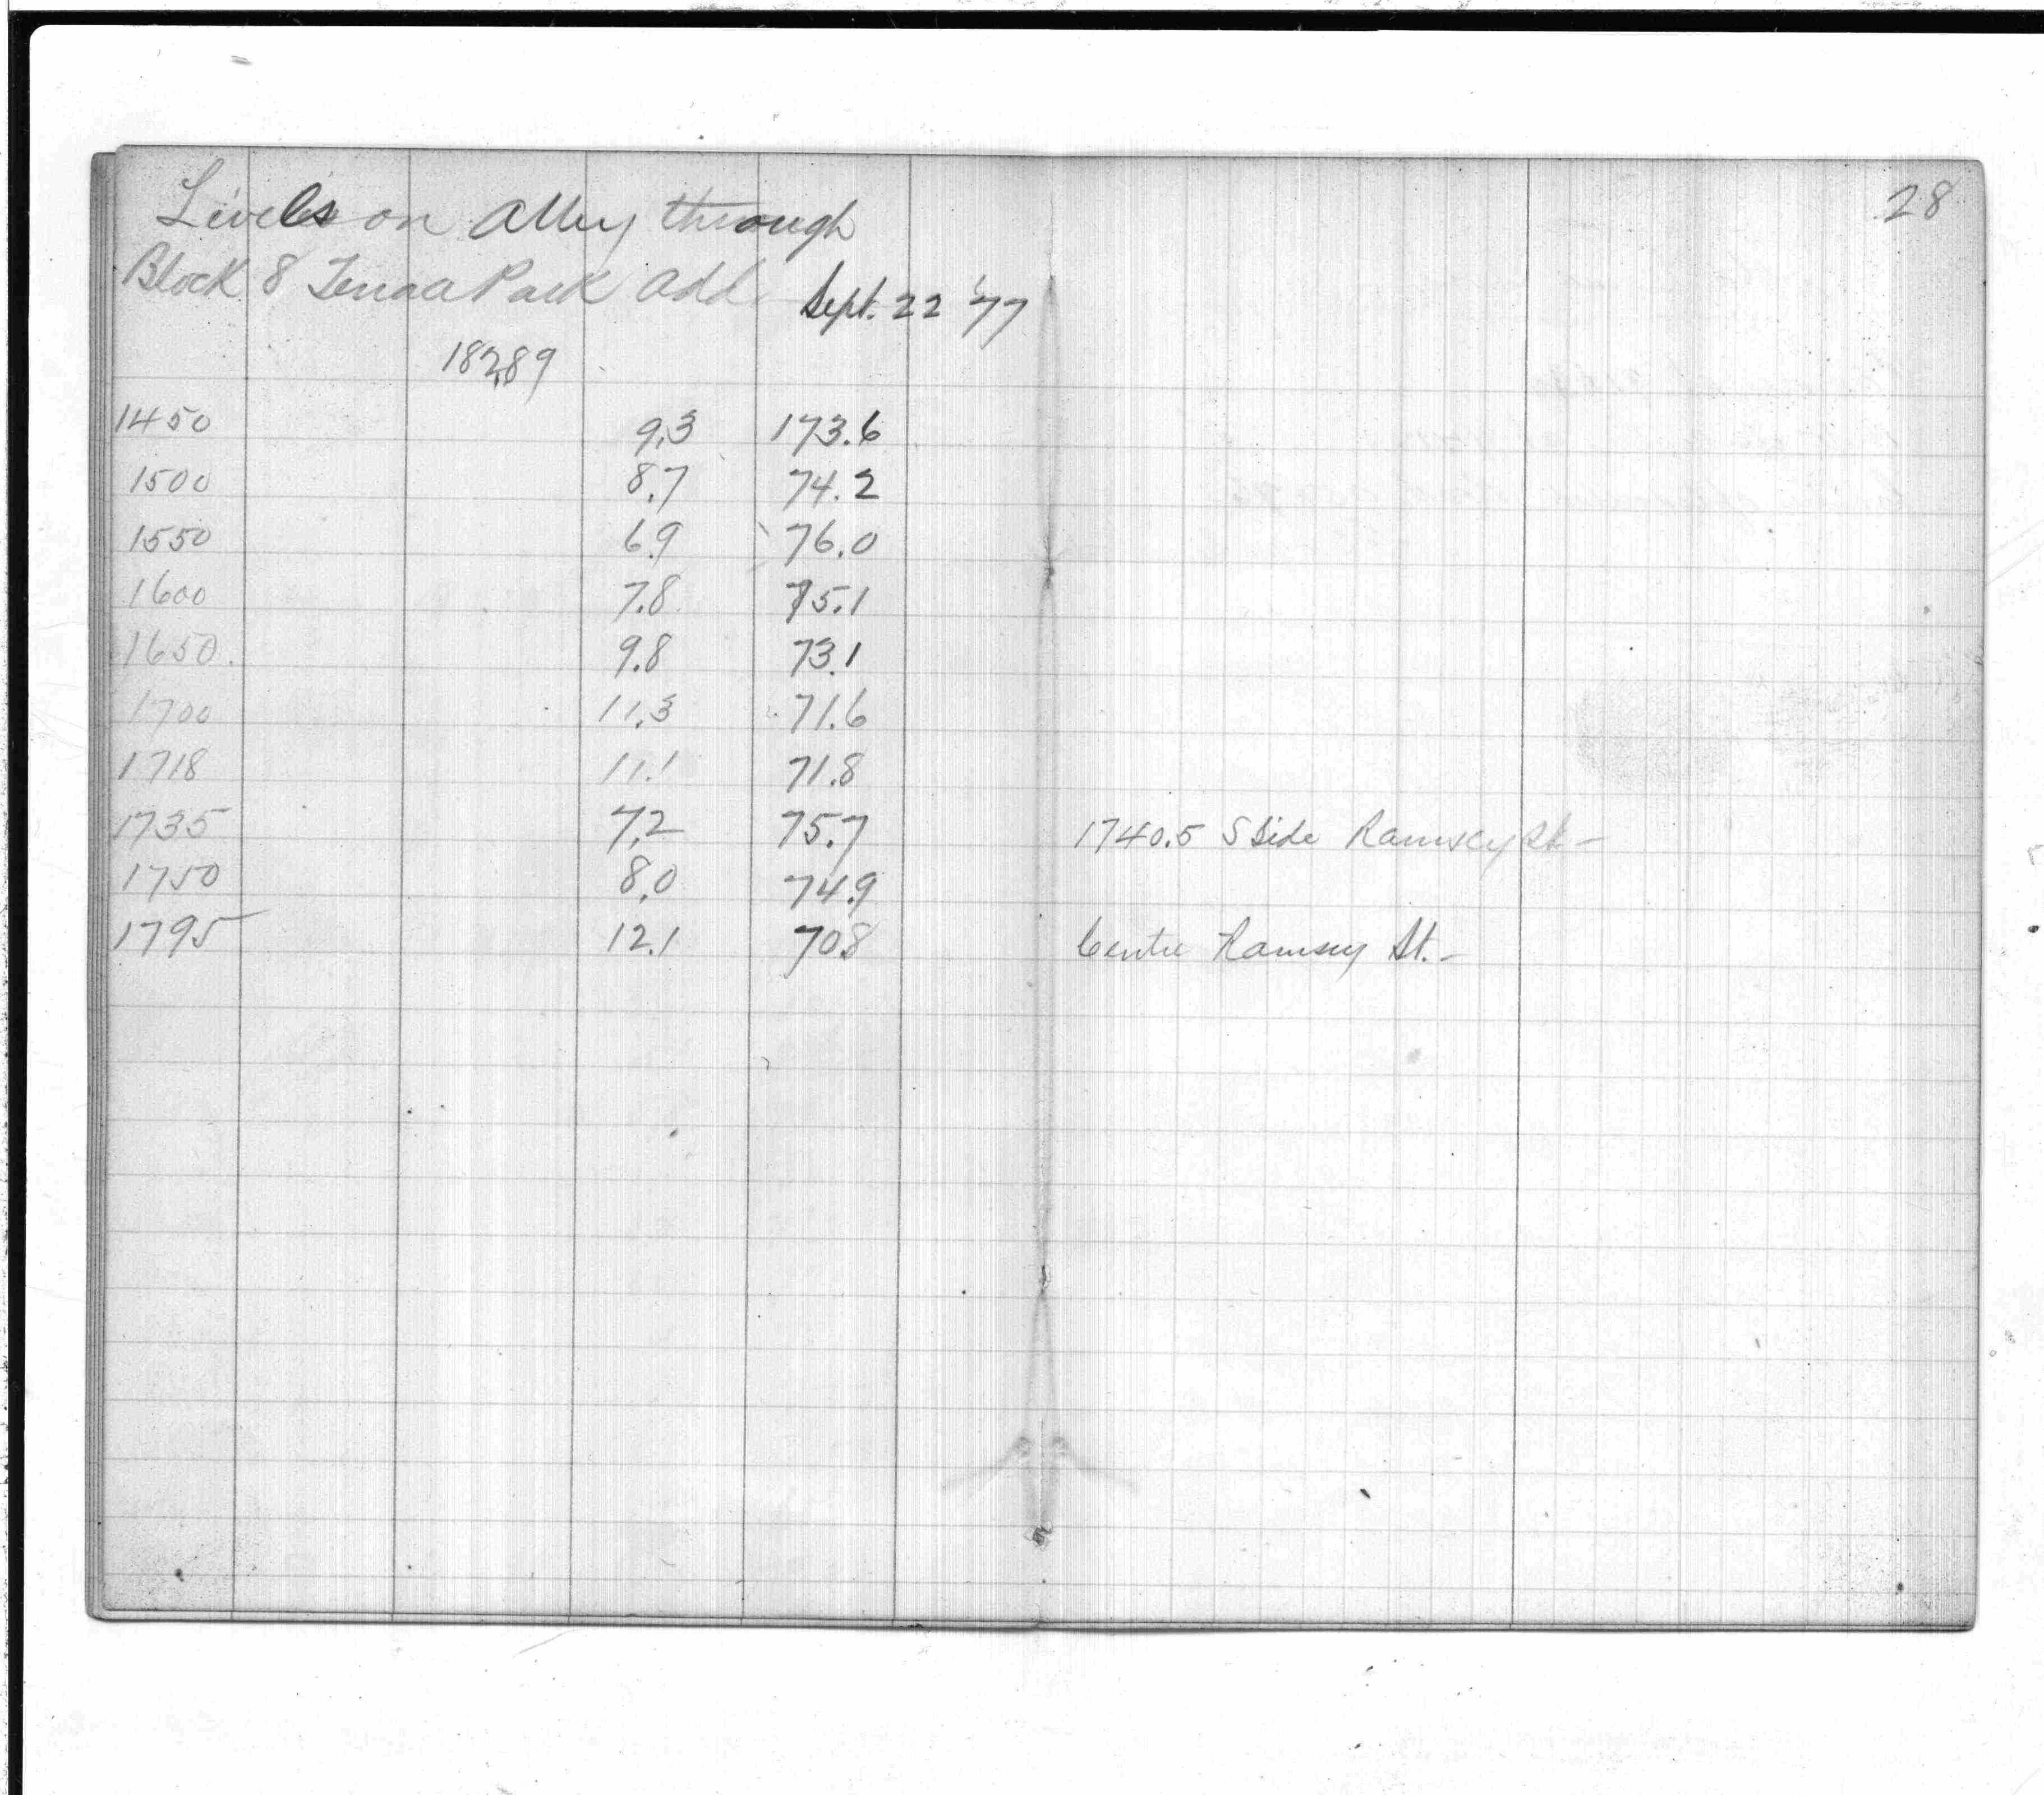 28
Levels on Alley through
Block 8 Park Add. Sept. 22 '77
182.89
1450 9.3 173.6
1500 8.7 74.2
1550 6.9 76.0
1600 7.8 75.1
1650 9.8 73.1
1700 11.3 71.6
1718 11.1 71.8
1735 7.2 75.7 1740.5 S Side Ramsey St-
1750 8.0 74.9
1795 12.1 70.8 Centre Ramsey St.-